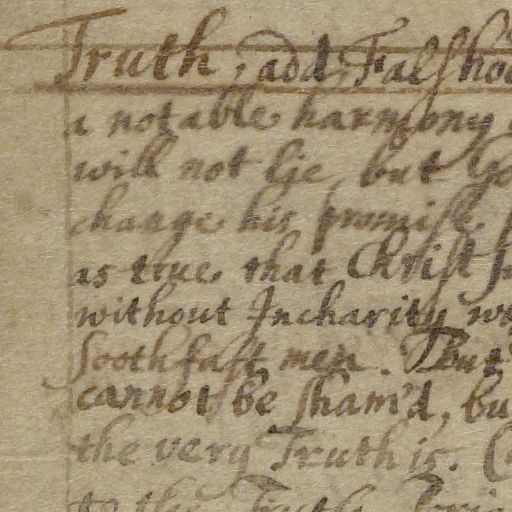 Truth, add, Falsho
a notable harmony
will not lie, but Go
change his promise
as true that Christ
without Incharity
soothfast men. But
cannot be sham'd, bu
the very Truth is.
to the Truth